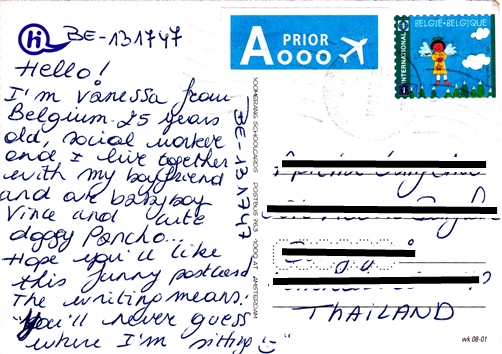 hi BE-131747
Hello!
I'm Vanessa from
Belgium. 25 years
old, social worker
and I live together
with my boyfriend
and our babyboy
Vince and cute
doggy Pancho...
Hope you'll like
this funny postcard
The writing means:
"You'll never guess
where I'm sitting"
BE-131747
BOOMERANG SCHOOLCARDS POSTBUS 1000 AT AMSTERDAM
A PRIOR
BELGIË-BELGIQUE
INTERNATIONAL
1
THAILAND
wk 08-01